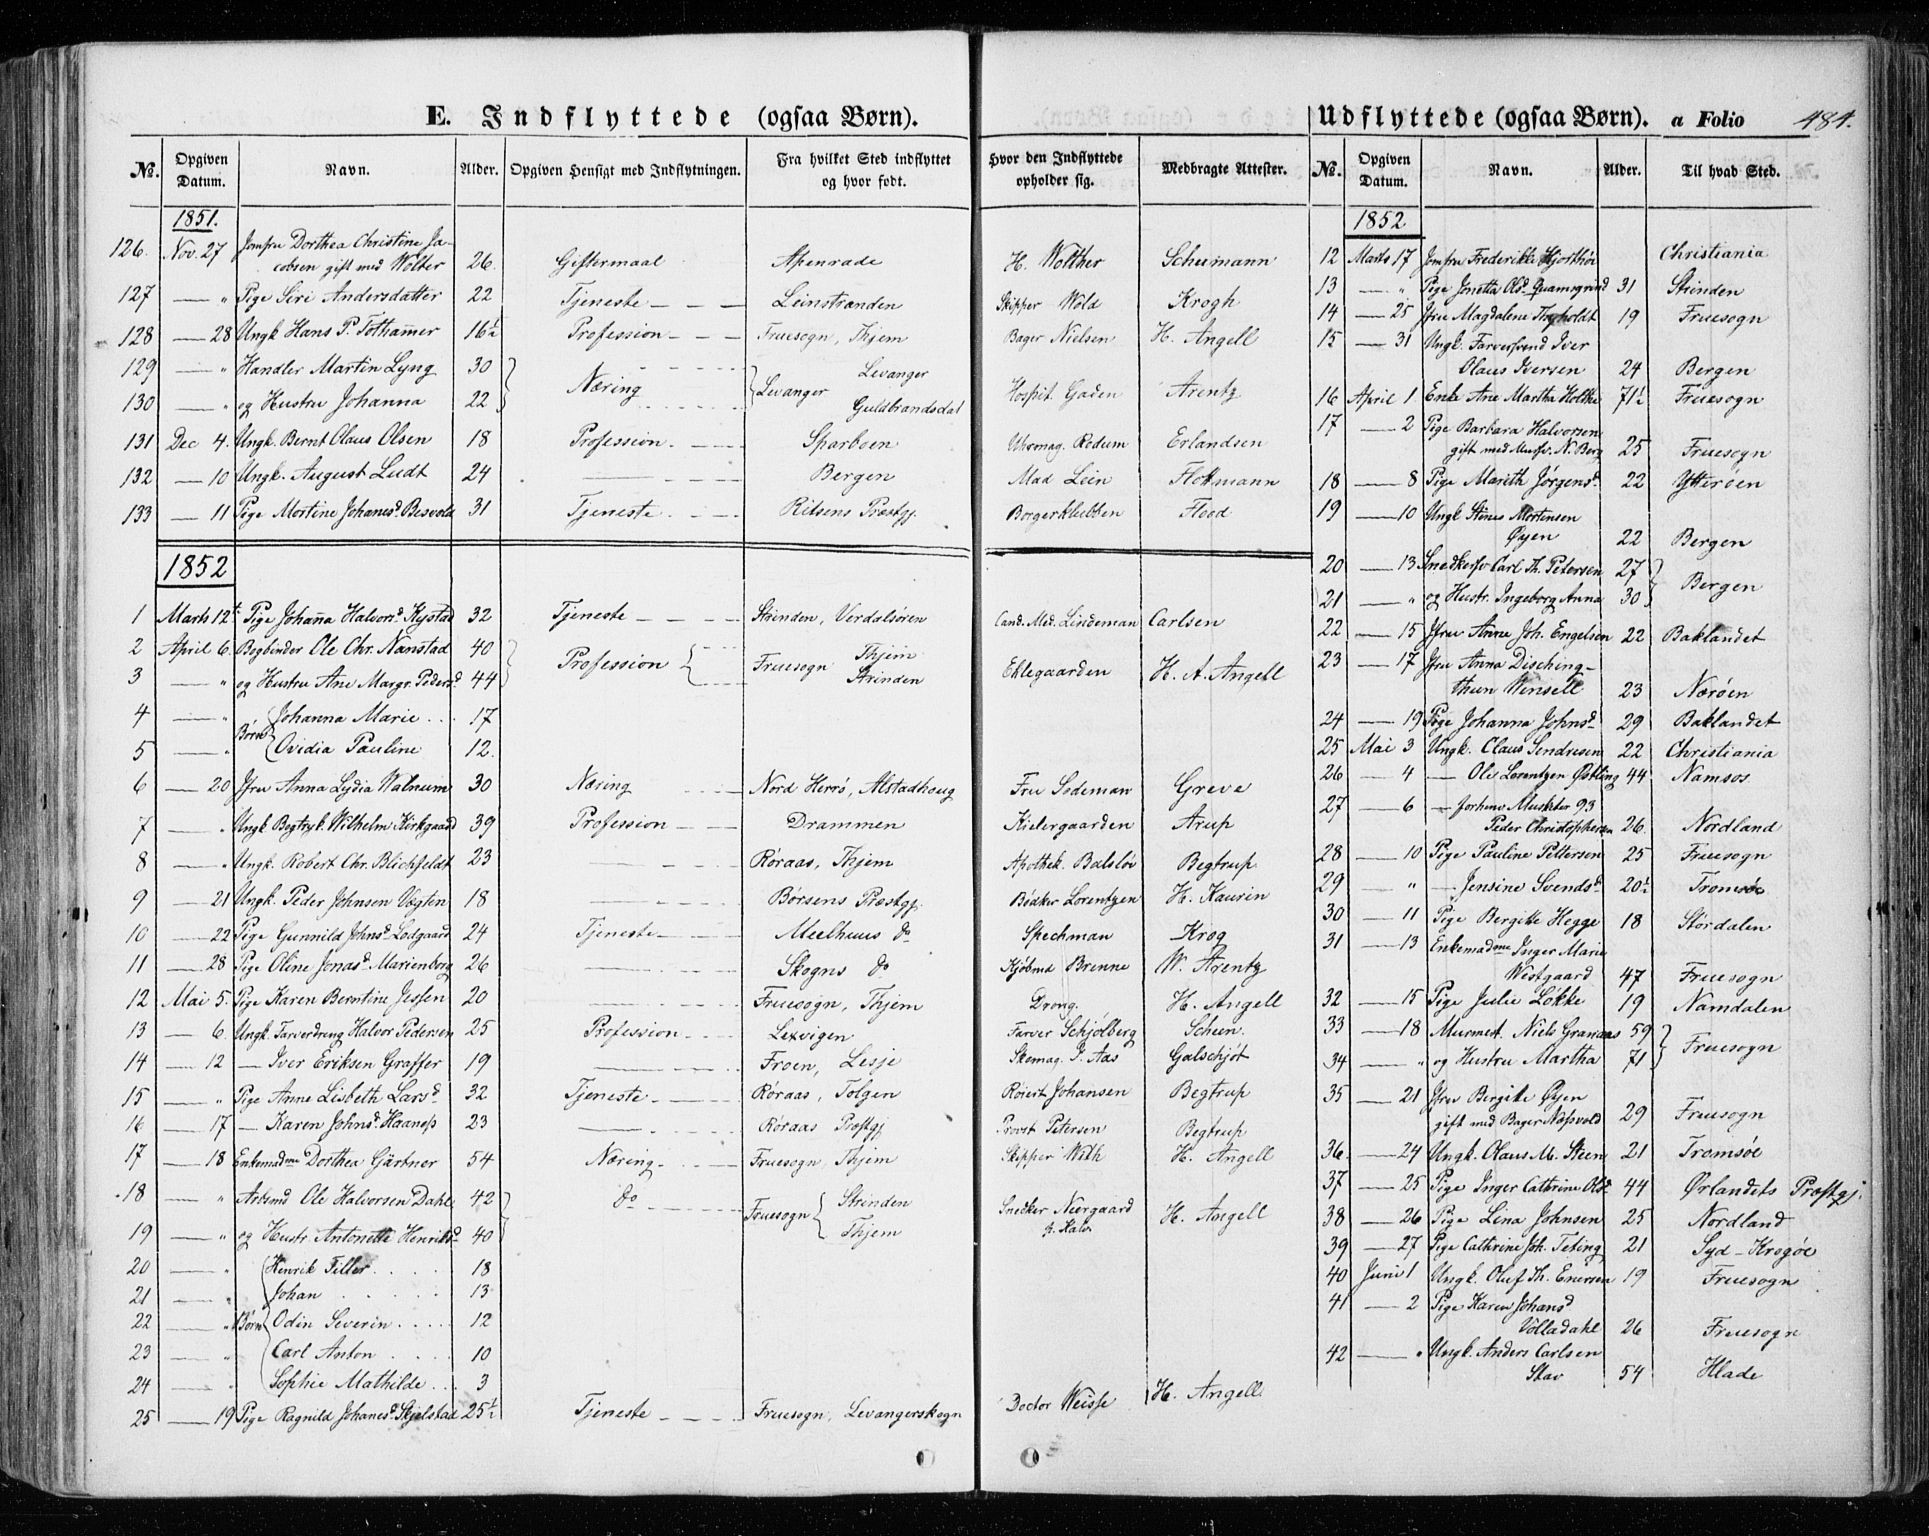 E. Indflyttede (ogsaa Børn).
No. Opgiven Datum. Navn. Alder. Opgiven Hensigt med Indflytningen. Fra hvilket Sted indflyttet og hvor født. Hvor den Indflyttede opholder sig. Medbragte Attester.
1851.
126. Nov. 27 Jomfru Dorthea Christine Ja-
cobsen gift med Wolter 26 Giftermaal Apenrade H. Wolther Schumann
127 — " Pige Siri Andersdatter 22 Tjeneste Leinstranden Skipper Wold Krogh
128 — 28 Ungk Hans P. Tothammer 16½ Profession Fruesogn, Thjem Bager Nielsen H. Angell
129 — " Handler Martin Lyng 30 Næring Levanger Levanger Hospit. Gaden Arentz
130 — " og Hustru Johanna 22 Guldbrandsdal
131 Dec 4. Ungk. Bernt Olaus Olsen 18 Profession Sparboen Uhrmag. Rodum Erlandsen
132 — 10 Ungk. August Ludt 24 — Bergen Mad Lein Flottmann
133 — 11 Pige Martine Johanesd. Besvold 31 Tjeneste Ritsens Præstgj. Borgerklubben Flood
1852
1 Marts 12t Pige Johanna Halvorsd. Kystad 32 Tjeneste Strinden, Verdalsören Cand. Med. Lindeman Carlsen
2 April 6. Bogbinder Ole Chr. Nanstad 40 Profession Fruesogn Thjem Eklegaarden H. A. Angell
3 — " og Hustru Ane Margr. Pedersd. 44 Strinden
4 — " Børn Johanna Marie 17
5 — " Ovidia Pauline 12.
6 — 20 Jfru Anna Lydia Walnum 30 Næring Nord Herrø, Alstadhoug Fru Sodeman Greve
7 — " Ungk Bogtryk. Wilhelm Kirkgaard 39 Profession Drammen Kielergaarden Arup
8 — " Ungk. Robert Chr. Blichfeldt 23 — Røraas, Thjem Apothek. Balsløv Begtrup
9 — 21 Ungk. Peder Johnsen Vegten 18 — Børsens Præstgj. Bödker Lorentzen H. Kaurin
10 — 22 Pige Gunnild Johnsd. Lodgaard 24 Tjeneste Meelhuus do Spechman Krog
11 — 28 Pige Oline Jonasd. Marienborg 26 — Skogns do Kjöbmd Brenne W. Arentz
12 Mai 5. Pige Karen Berntine Jessen 20 — Fruesogn, Thjem Drong. H. Angell
13 — 6. Ungk. Farverdreng Halvor Pedersen 25 Profession Lexvigen Farver Schjolberg Scheen.
14 — 12 — Iver Eriksen Graffer 19 — Froen, Lesje Skomag. P. Aas Galschjöt
15 — " Pige Anne Lisbeth Larsd. 32 Tjeneste Røraas, Tolgen Röiert Johansen Begtrup
16 — 17 — Karen Johnsd. Haaness 23 — Røraas Præstgj Provst Petersen Begtrup
17 — 18 Enkemadme Dorthea Gjärtner 54 Næring Fruesogn, Thjem Skipper With H. Angell
18 — " Arbmd Ole Halvorsen Dahl 42 do Fruesogn Strinden Snecker Neergaard H. Angell
19 — " og Hustr. Antonette Henriksd. 40 Thjem
20 — " Børn Henrik Tiller 18
21 — " Johan 13
22 — " Odin Severin 12
23 — " Carl Anton 10
24 — " Sophie Mathilde 3
25 — 19 Pige Ragnild Johanesd. Skjelstad 25½ Tjeneste Fruesogn, Levangerskogn Doctor Weisse H. Angell
Udflyttede (ogsaa Børn). a Folio 484.
No. Opgiven Datum. Navn. Alder. Til hvad Sted.
1852
12 Marts 17 Jomfru Frederikke Hjorthöi Christiania
13 — " Pige Jonetta Olsd. Quamsgrind 31 Strinden
14 — 25 Jfru Magdalene Thyholdt 19 Fruesogn
15 — 31 Ungk. Farversvend Iver
Olaus Iversen 24 Bergen
16 April 1 Enke Ane Martha Holtke 71½ Fruesogn
17 — 2 Pige Barbara Halvorsen
gift med N. Berg 25 Fruesogn
18 — 8 Pige Marith Jørgensd. 22 Ytterøen
19 — 10 Ungk Stinus Mortensen
Øyen 22 Bergen
20 — 13 Snedkersv Carl Th. Petersen 27 Bergen
21 — " og Hustr. Ingeborg Anna 30
22 — 15 Jfru Anne Joh. Engelsen 22 Baklandet
23 — 17 Jfru Anna Disching-
thun Wensell 23 Nærøen
24 — 19 Pige Johanna Johnsd. 29 Baklandet
25 Mai 3 Ungk. Claus Sendresen 22 Christiania
26 — 4 — Ole Lorentzen Østling 44 Namsos
27 — 6 — forhenv Musketer 93
Peder Christophersen 26. Nordland
28 — 10 Pige Pauline Pettersen 25 Fruesogn
29 — " — Jensine Svendsd. 20½ Tromsøe
30 — 11 Pige Bergitte Hegge 18 Stördalen
31 — 13 Enkemadme Inger Marie
Westgaard 47 Fruesogn
32 — 15 Pige Julie Løkke 19 Namdalen
33 — 18 Murmest. Niels Granaas 59 Fruesogn
34 — " og Hustru Martha 71
35 — 21 Jfru Bergitte Øyen
gift med Bager Næsvold 29 Fruesogn
36. — 24 Ungk. Olaus M. Steen 21 Tromsøe
37 — 25 Pige Inger Cathrine Olsd. 44 Ørlandets Præstgj.
38 — 26 Pige Lina Johnsen 25 Nordland
39 — 27 Pige Cathrine Joh. Teting 21 Syd-Krogöe
40 Juni 1 Ungk. Oluf Th. Enersen 19 Fruesogn
41 — 2 Pige Karen Johansd
Volladahl 26 Fruesogn
42 — " Ungk. Anders Carlsen
Stav 54 Hlade